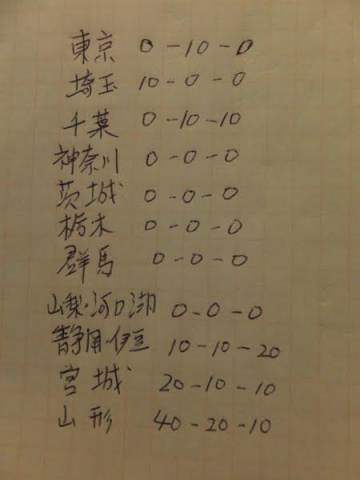 東京 0-10-0
埼玉 10-0-0
千葉 0-10-10
神奈川 0-0-0
茨城 0-0-0
栃木 0-0-0
群馬 0-0-0
山梨・河口湖 0-0-0
静岡・伊豆 10-10-20
宮城 20-10-10
山形 40-20-10